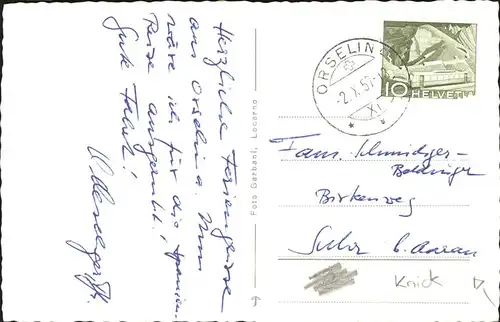 Herzliche Feriengrüsse
aus Orselina. Nun
wäre ich für die
Reise ausgeruht!
Gute Fahrt!
Foto Garbani, Locarno
ORSELINA
-2.X.57-
XI
10
HELVETIA
Fam. Schmidiger-
Birkenweg
Suhr b. Aarau
Knick